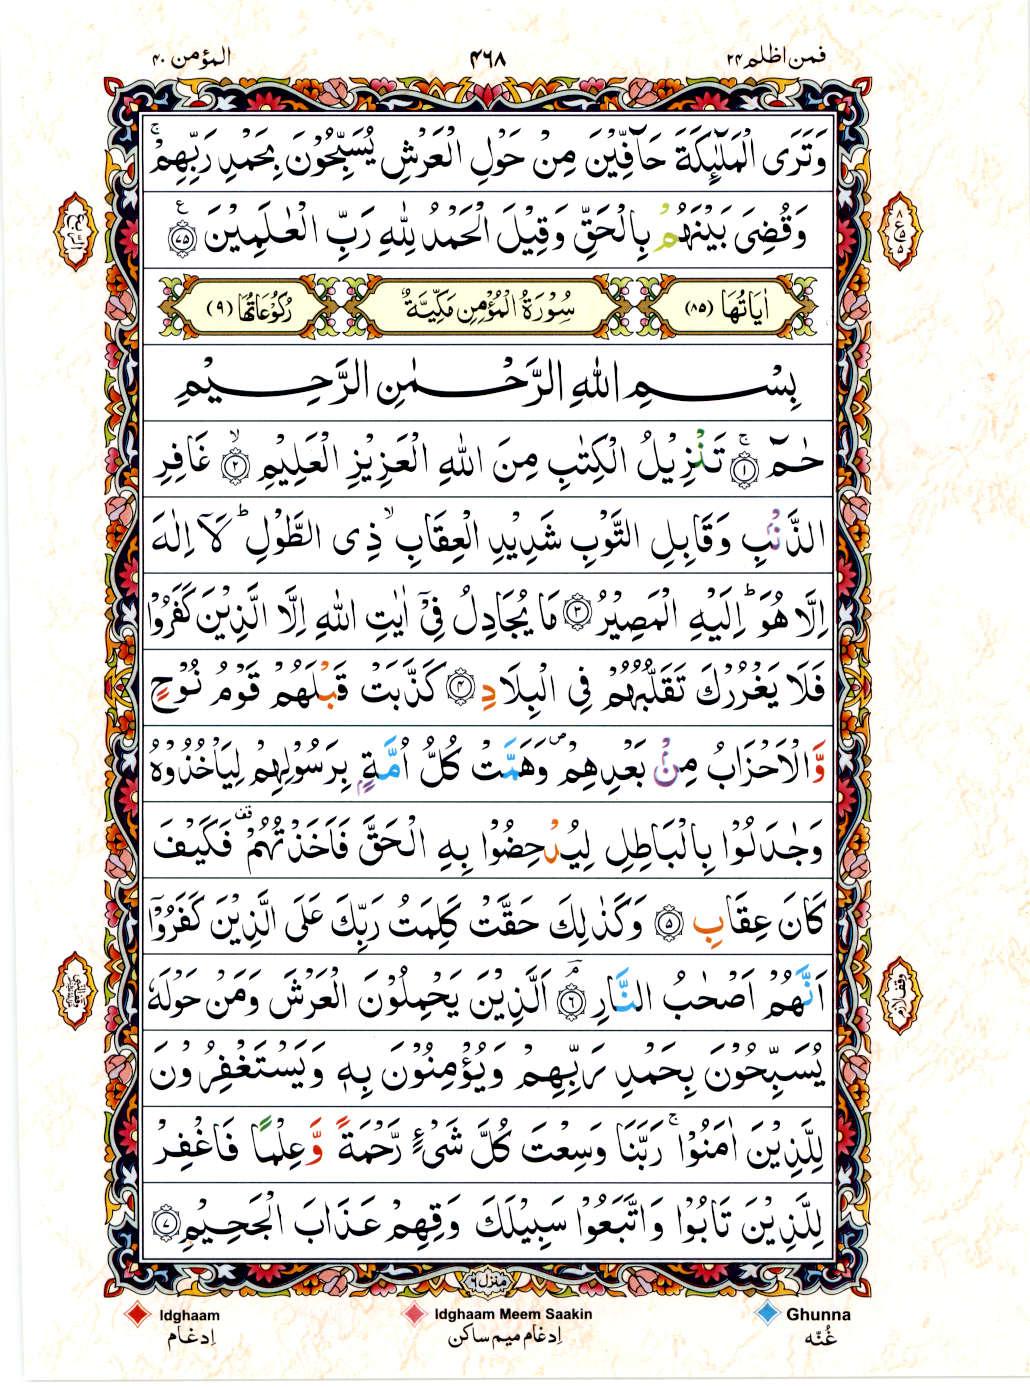 المؤمن ۴۰
۴۶۸
فمن اظلم ۲۴
وَتَرَى الْمَلٰٓئِكَةَ حَآفِّيْنَ مِنْ حَوْلِ الْعَرْشِ يُسَبِّحُوْنَ بِحَمْدِ رَبِّهِمْ ۚ
وَقُضِىَ بَيْنَهُمْ بِالْحَقِّ وَقِيْلَ الْحَمْدُ لِلّٰهِ رَبِّ الْعٰلَمِيْنَ ﴿۷۵﴾ ع
اٰيَاتُهَا (۸۵)
سُوْرَةُ الْمُؤْمِنِ مَكِّيَّةٌ
رُكُوْعَاتُهَا (۹)
بِسْمِ اللّٰهِ الرَّحْمٰنِ الرَّحِيْمِ
حٰمٓ ۚ ﴿۱﴾ تَنْزِيْلُ الْكِتٰبِ مِنَ اللّٰهِ الْعَزِيْزِ الْعَلِيْمِ ۙ ﴿۲﴾ غَافِرِ
الذَّنْۢبِ وَقَابِلِ التَّوْبِ شَدِيْدِ الْعِقَابِ ۙ ذِى الطَّوْلِ ؕ لَاۤ اِلٰهَ
اِلَّا هُوَ ؕ اِلَيْهِ الْمَصِيْرُ ﴿۳﴾ مَا يُجَادِلُ فِىْۤ اٰيٰتِ اللّٰهِ اِلَّا الَّذِيْنَ كَفَرُوْا
فَلَا يَغْرُرْكَ تَقَلُّبُهُمْ فِى الْبِلَادِ ﴿۴﴾ كَذَّبَتْ قَبْلَهُمْ قَوْمُ نُوْحٍ
وَّالْاَحْزَابُ مِنْۢ بَعْدِهِمْ ۪ وَهَمَّتْ كُلُّ اُمَّةٍۭ بِرَسُوْلِهِمْ لِيَاْخُذُوْهُ
وَجٰدَلُوْا بِالْبَاطِلِ لِيُدْحِضُوْا بِهِ الْحَقَّ فَاَخَذْتُهُمْ قف فَكَيْفَ
كَانَ عِقَابِ ﴿۵﴾ وَكَذٰلِكَ حَقَّتْ كَلِمَتُ رَبِّكَ عَلَى الَّذِيْنَ كَفَرُوْۤا
اَنَّهُمْ اَصْحٰبُ النَّارِ ۘ ﴿۶﴾ اَلَّذِيْنَ يَحْمِلُوْنَ الْعَرْشَ وَمَنْ حَوْلَهٗ
يُسَبِّحُوْنَ بِحَمْدِ رَبِّهِمْ وَيُؤْمِنُوْنَ بِهٖ وَيَسْتَغْفِرُوْنَ
لِلَّذِيْنَ اٰمَنُوْا ۚ رَبَّنَا وَسِعْتَ كُلَّ شَىْءٍ رَّحْمَةً وَّعِلْمًا فَاغْفِرْ
لِلَّذِيْنَ تَابُوْا وَاتَّبَعُوْا سَبِيْلَكَ وَقِهِمْ عَذَابَ الْجَحِيْمِ ﴿۷﴾
منزل ۶
Idghaam
اِدغام
Idghaam Meem Saakin
اِدغام میم ساکن
Ghunna
غُنّه